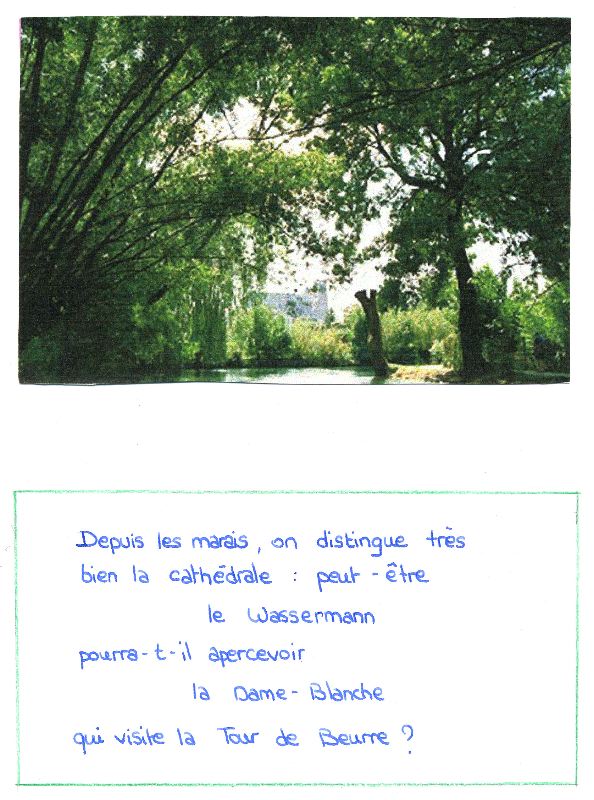 Depuis les marais, on distingue très
bien la cathédrale : peut-être
le Wassermann
pourra-t-il apercevoir
la Dame-Blanche
qui visite la Tour de Beurre ?